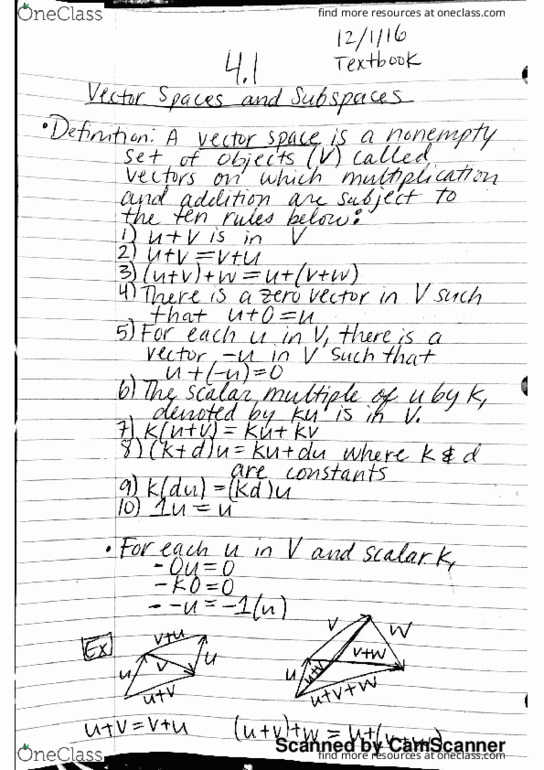 OneClass
find more resources at oneclass.com
12/1/16
Textbook
4.1
Vector Spaces and Subspaces
• Definition: A vector space is a nonempty
set of objects (V) called
vectors on which multiplication
and addition are subject to
the ten rules below:
1) u+v is in V
2) u+v=v+u
3) (u+v)+w=u+(v+w)
4) There is a zero vector in V such
that u+0=u
5) For each u in V, there is a
vector -u in V such that
u+(-u)=0
6) The scalar multiple of u by k,
denoted by ku is in V.
7) k(u+v)=ku+kv
8) (k+d)u=ku+du where k & d
are constants
9) k(du)=(kd)u
10) 1u=u
• For each u in V and scalar k,
- 0u=0
- k0=0
- -u=-1(u)
Ex
v+u
u
v
u
u+v
v
w
u
u+v
v+w
u+v+w
u+v=v+u
(u+v)+w=u+(v+w)
Scanned by CamScanner
OneClass
find more resources at oneclass.com